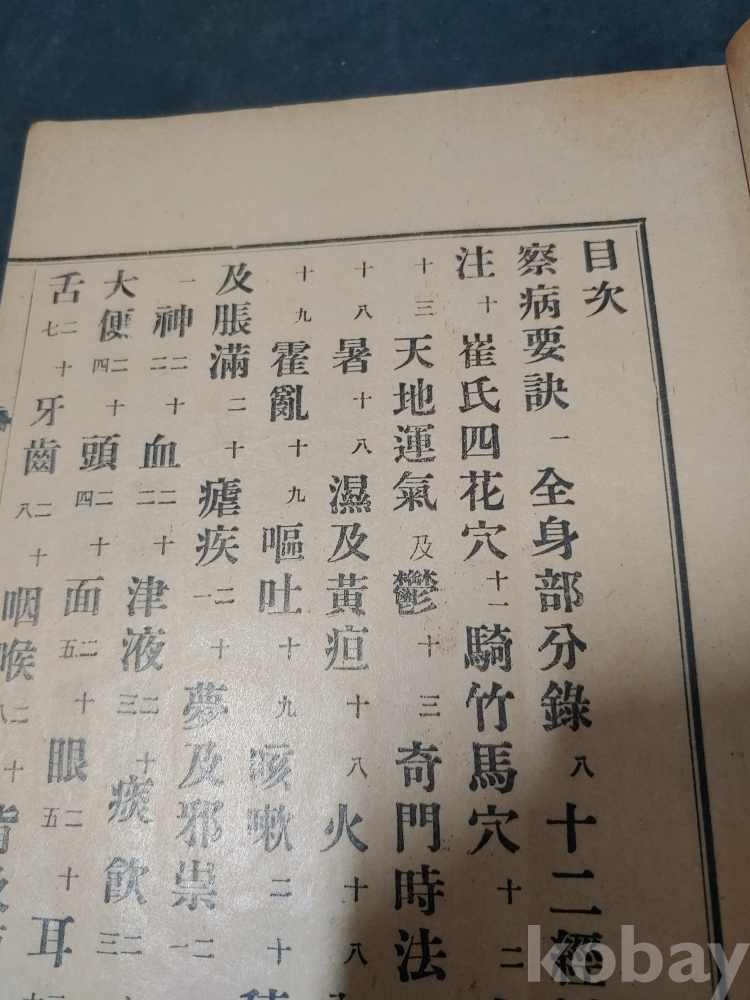 目次
察病要訣 一 全身部分錄 八 十二經
注 十 崔氏四花穴 十一 騎竹馬穴 十二
十三 天地運氣及鬱 十三 奇門時法
十八 暑 十八 濕及黃疸 十八 火 十八
十九 霍亂 十九 嘔吐 十九 咳嗽 二十
及脹滿 二十 瘧疾 二十一 夢及邪祟 二
一 神 二十二 血 二十二 津液 二十三 痰飮 二三
大便 二十四 頭 二十四 面 二十五 眼 二十五 耳
舌 二十七 牙齒 二十八 咽喉 二十八
kobay